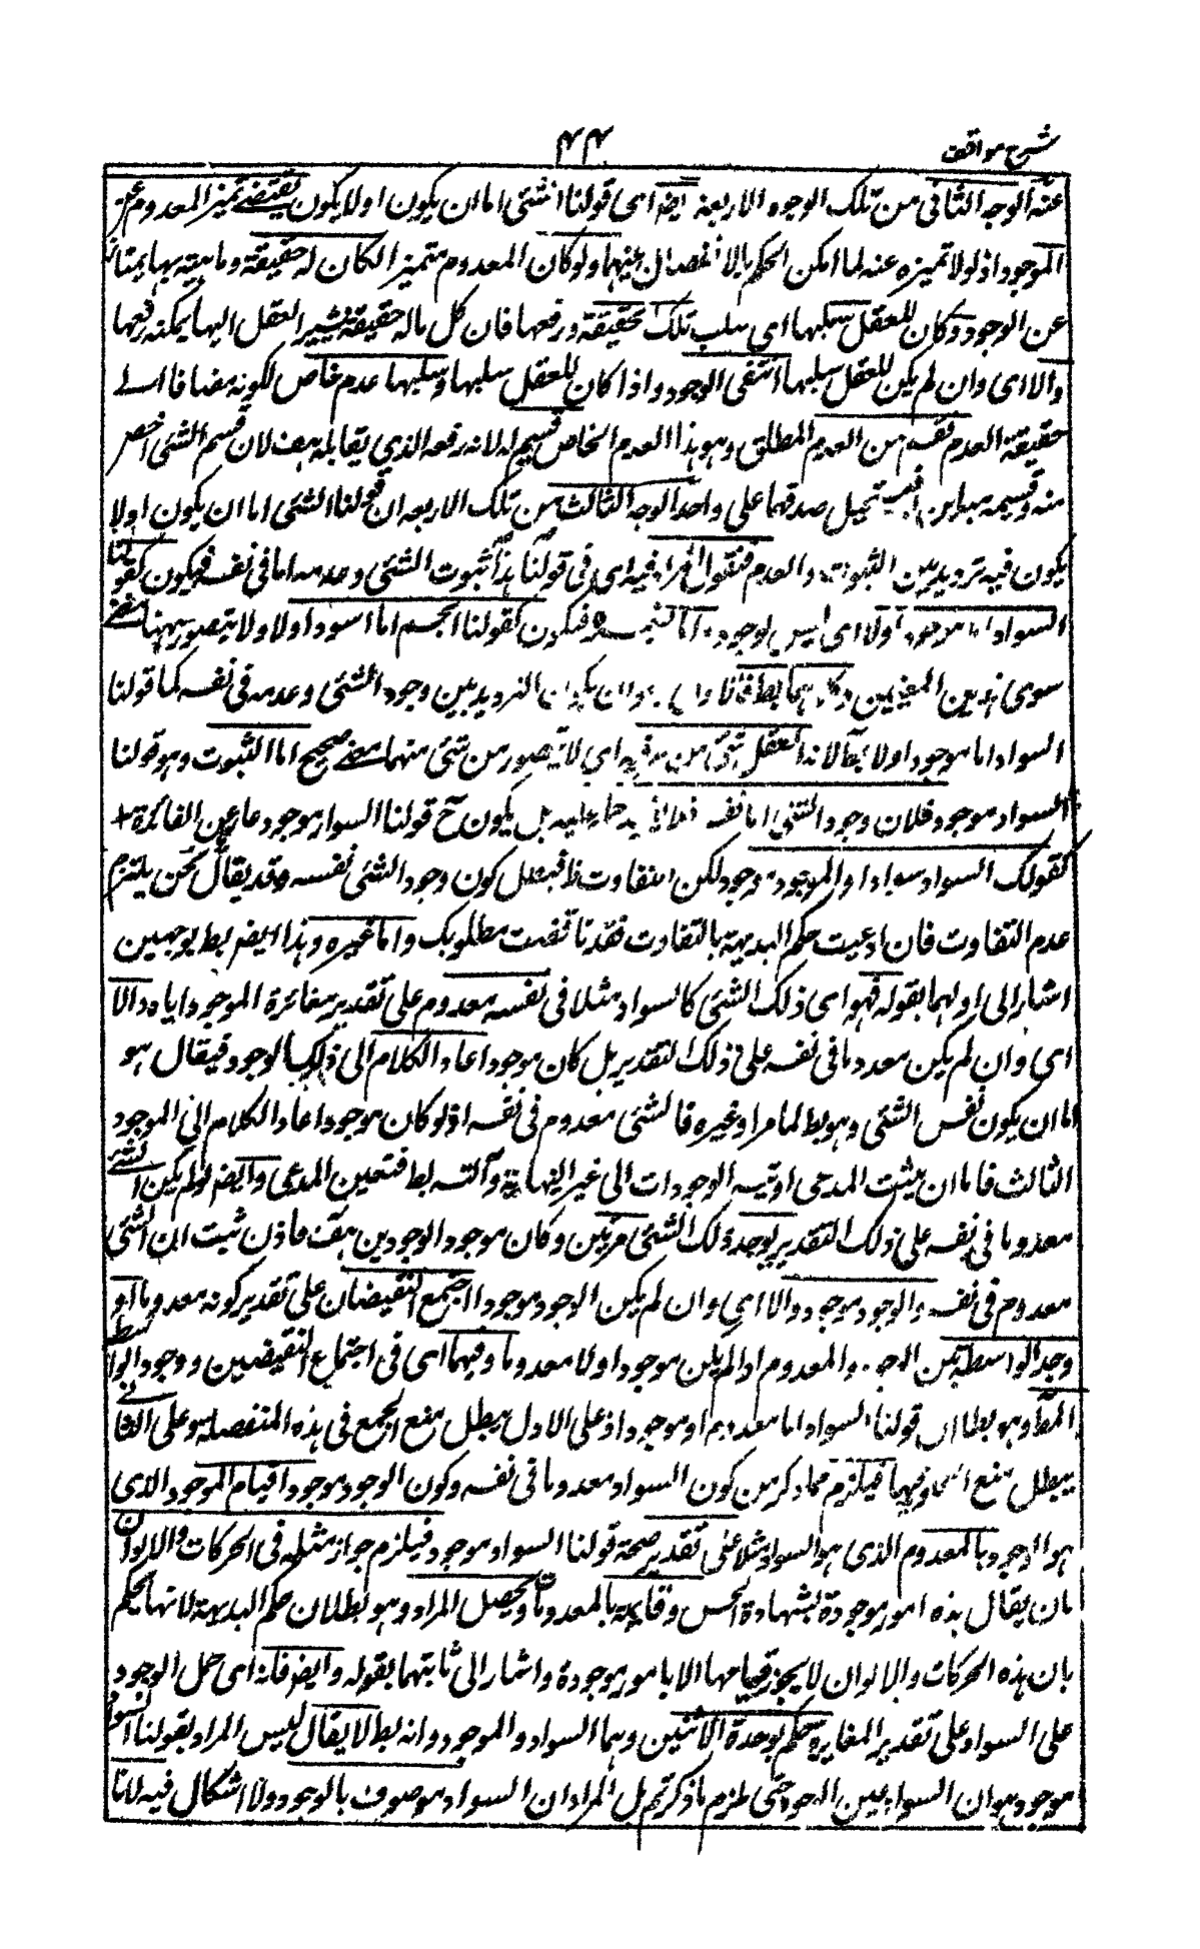 شرح مواقف
۴۴
عنه الوجه الثانی من تلک الوجوه الاربعة ایضا ای قولنا الشئی اما ان یکون او لا یکون یقتضے تمیز المعدوم عن
الموجود اذ لولا تمیزه عنه لما امکن الحکم بالانفصال بینهما ولو کان المعدوم متمیزا لکان له حقیقة وماهیة بها یمتاز
عن الوجود وکان للعقل سلبها ای سلب تلک الحقیقة ورفعها فان کل ماله حقیقة یشیر العقل الیها یمکنه رفعها
والا ای وان لم یکن للعقل سلبها انتفی الوجود واذا کان للعقل سلبها وسلبها عدم خاص لکونه مضافا الے
حقیقة العدم قسم من العدم المطلق وهو هذا العدم الخاص قسیم له لانه رفعه الذی یقابله هف لان قسم الشئی اخص
منه وقسیمه مباین له فیستحیل صدقهما علی واحد الوجه الثالث من تلک الاربعه ان قولنا الشئی اما ان یکون اولا
یکون فیه تردید بین الثبوت والعدم فنقول المراد فیه ای فی قولنا هذا ثبوت الشئی وعدمه اما فی نفسه فیکون کقولنا
السواد اما موجود اولا ای لیس بموجود واما لغیره فیکون کقولنا الجسم اما اسود اولا ولا یتصور ههنا معنے
سوی هذین المعنیین وکلاهما بط فالاول وهو ان یکون التردید بین وجود الشئی وعدمه فی نفسه کما قولنا
السواد اما موجود اولا بط لانه لا یعقل شئی من طرفیه ای لا یتصور من شئی منهما معنے صحیح اما الثبوت وهو قولنا
السواد موجود فلان وجود الشئی اما نفسه فلا یفید حمله علیه بل یکون ح قولنا السواد موجود عاریا عن الفائدة
کقولک السواد سواد او الموجود موجود لکن التفاوت ظ فبطل کون وجود الشئی نفسه وقد یقال نحن نلتزم
عدم التفاوت فان ادعیت حکم البدیهة بالتفاوت فقد ناقضت مطلوبک واما غیره وهذا ایضا بط بوجهین
اشار الی اولهما بقوله فهو ای ذلک الشئی کالسواد مثلا فی نفسه معدوم علی تقدیر مغائرة الموجود ایاه والا
ای وان لم یکن معدوما فی نفسه علی ذلک التقدیر بل کان موجودا عاد الکلام الی ذلک الوجود فیقال هو
اما ان یکون نفس الشئی وهو بط لما مر او غیره فالشئی معدوم فی نفسه اذ لو کان موجودا عاد الکلام الی الموجود
الثالث فاما ان یثبت المدعی او تتسلسل الوجودات الی غیر النهایة والتسلسل بط فتعین المدعی وایضا لو لم یکن الشئے
معدوما فی نفسه علی ذلک التقدیر یوجد ذلک الشئی مرتین وکان موجودا الوجودین هف فاذن ثبت ان الشئی
معدوم فی نفسه والوجود موجود والا ای وان لم یکن الوجود موجودا اجتمع النقیضان علی تقدیر کونه معدوما او
وجد الواسطة بین الموجود والمعدوم اذا لم یکن موجودا ولا معدوما وفیهما ای فی اجتماع النقیضین ووجود الواسطة
المط وهو بطلان قولنا السواد اما معدوم او موجود اذ علی الاول یبطل منع الجمع فی هذه المنفصله وعلی الثانے
یبطل منع الخلو فیها فیلزم مما ذکر من کون السواد معدوما فی نفسه وکون الوجود موجودا قیام الموجود الذی
هو الوجود بالمعدوم الذی هو السواد مثلا علی تقدیر صحة قولنا السواد موجود فیلزم جواز مثله فی الحرکات والالوان
بان یقال هذه امور موجودة بشهادة الحس وقائمة بالمعدومات ویحصل المراد وهو بطلان حکم البدیهة لانها تحکم
بان هذه الحرکات والالوان لا یجوز قیامها الا بامور موجودة واشار الی ثانیتهما بقوله وایضا فانه ای حمل الوجود
علی السواد علی تقدیر المغایرة حکم بوحدة الاثنین وهما السواد والموجود وانه بط لا یقال لیس المراد بقولنا السواد
موجود هو ان السواد عین الموجود حتی یلزم ما ذکرتم بل المراد ان السواد موصوف بالوجود ولا اشکال فیه لانا